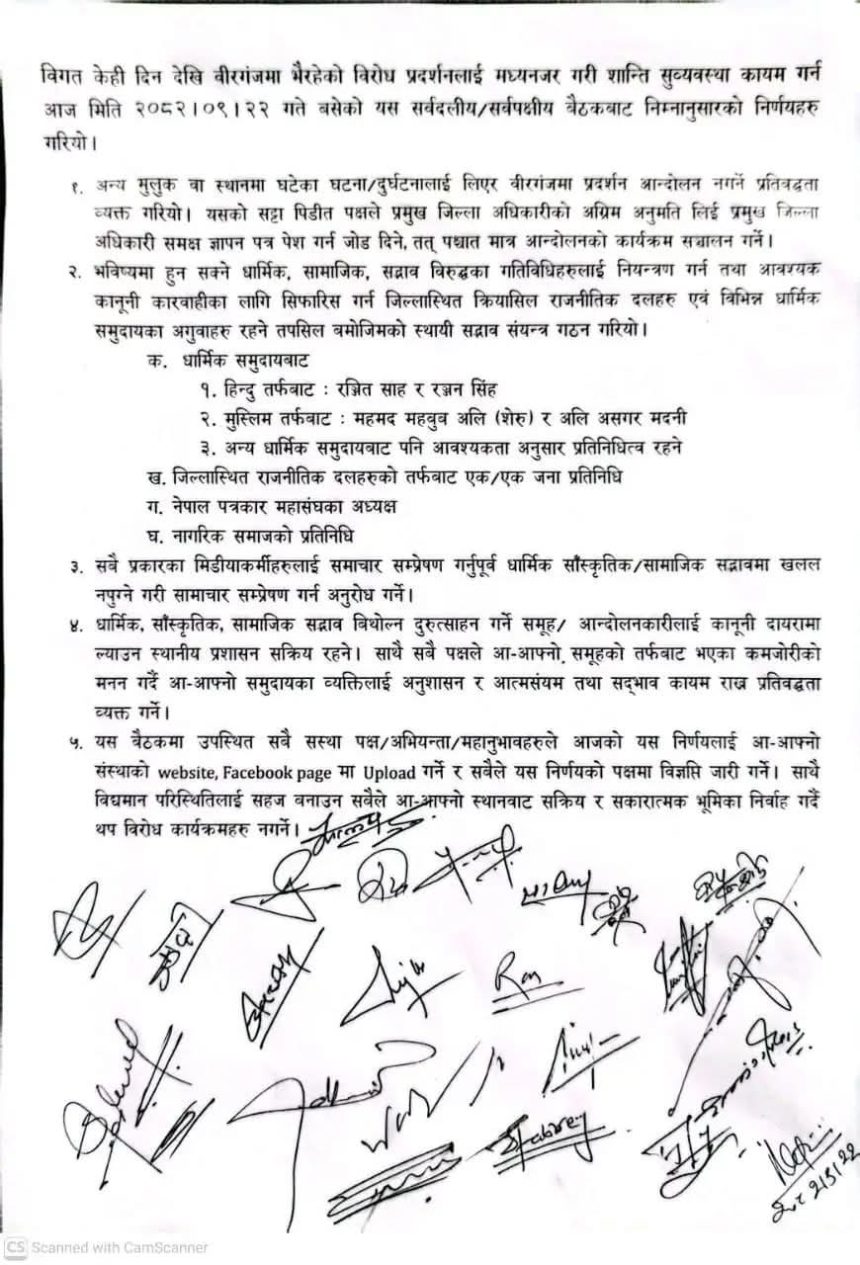 विगत केही दिन देखि वीरगंजमा भैरहेको विरोध प्रदर्शनलाई मध्यनजर गरी शान्ति सुव्यवस्था कायम गर्न
आज मिति २०८२।०९।२२ गते बसेको यस सर्वदलीय/सर्वपक्षीय बैठकबाट निम्नानुसारको निर्णयहरु
गरियो।
१. अन्य मुलुक वा स्थानमा घटेका घटना/दुर्घटनालाई लिएर वीरगंजमा प्रदर्शन आन्दोलन नगर्ने प्रतिवद्धता
व्यक्त गरियो। यसको सट्टा पिडीत पक्षले प्रमुख जिल्ला अधिकारीको अग्रिम अनुमति लिई प्रमुख जिल्ला
अधिकारी समक्ष ज्ञापन पत्र पेश गर्न जोड दिने, तत् पश्चात मात्र आन्दोलनको कार्यक्रम सञ्चालन गर्ने।
२. भविष्यमा हुन सक्ने धार्मिक, सामाजिक, सद्भाव विरुद्धका गतिविधिहरुलाई नियन्त्रण गर्न तथा आवश्यक
कानूनी कारवाहीका लागि सिफारिस गर्न जिल्लास्थित क्रियासिल राजनीतिक दलहरु एवं विभिन्न धार्मिक
समुदायका अगुवाहरु रहने तपसिल बमोजिमको स्थायी सद्भाव संयन्त्र गठन गरियो।
क. धार्मिक समुदायबाट
१. हिन्दु तर्फबाट : रञ्जित साह र रञ्जन सिंह
२. मुस्लिम तर्फबाट : महमद महबुव अलि (शेरु) र अलि असगर मदनी
३. अन्य धार्मिक समुदायबाट पनि आवश्यकता अनुसार प्रतिनिधित्व रहने
ख. जिल्लास्थित राजनीतिक दलहरुको तर्फबाट एक/एक जना प्रतिनिधि
ग. नेपाल पत्रकार महासंघका अध्यक्ष
घ. नागरिक समाजको प्रतिनिधि
३. सबै प्रकारका मिडीयाकर्मीहरुलाई समाचार सम्प्रेषण गर्नुपूर्व धार्मिक साँस्कृतिक/सामाजिक सद्भावमा खलल
नपुग्ने गरी सामाचार सम्प्रेषण गर्न अनुरोध गर्ने।
४. धार्मिक, साँस्कृतिक, सामाजिक सद्भाव बिथोल्न दुरुत्साहन गर्ने समूह/ आन्दोलनकारीलाई कानूनी दायरामा
ल्याउन स्थानीय प्रशासन सक्रिय रहने। साथै सबै पक्षले आ-आफ्नो समूहको तर्फबाट भएका कमजोरीको
मनन गर्दै आ-आफ्नो समुदायका व्यक्तिलाई अनुशासन र आत्मसंयम तथा सद्‌भाव कायम राख्न प्रतिवद्धता
व्यक्त गर्ने।
५. यस बैठकमा उपस्थित सबै सस्था पक्ष/अभियन्ता/महानुभावहरुले आजको यस निर्णयलाई आ-आफ्नो
संस्थाको website, Facebook page मा Upload गर्ने र सबैले यस निर्णयको पक्षमा विज्ञप्ति जारी गर्ने। साथै
विद्यमान परिस्थितिलाई सहज बनाउन सबैले आ-आफ्नो स्थानवाट सक्रिय र सकारात्मक भूमिका निर्वाह गर्दै
थप विरोध कार्यक्रमहरु नगर्ने।
CS Scanned with CamScanner